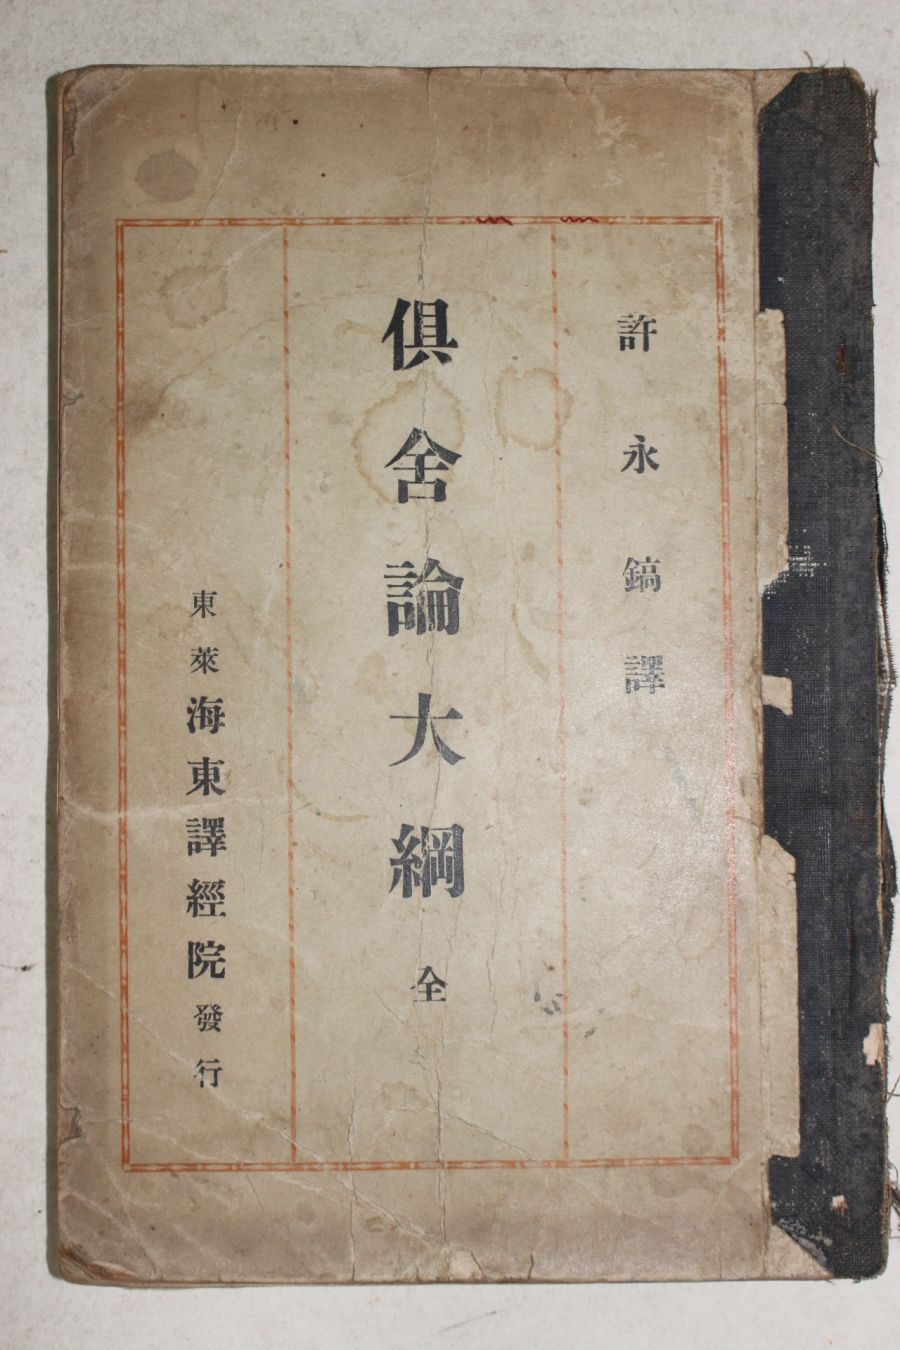 許永鎬譯
俱舍論大綱 全
東萊 海東譯經院 發行